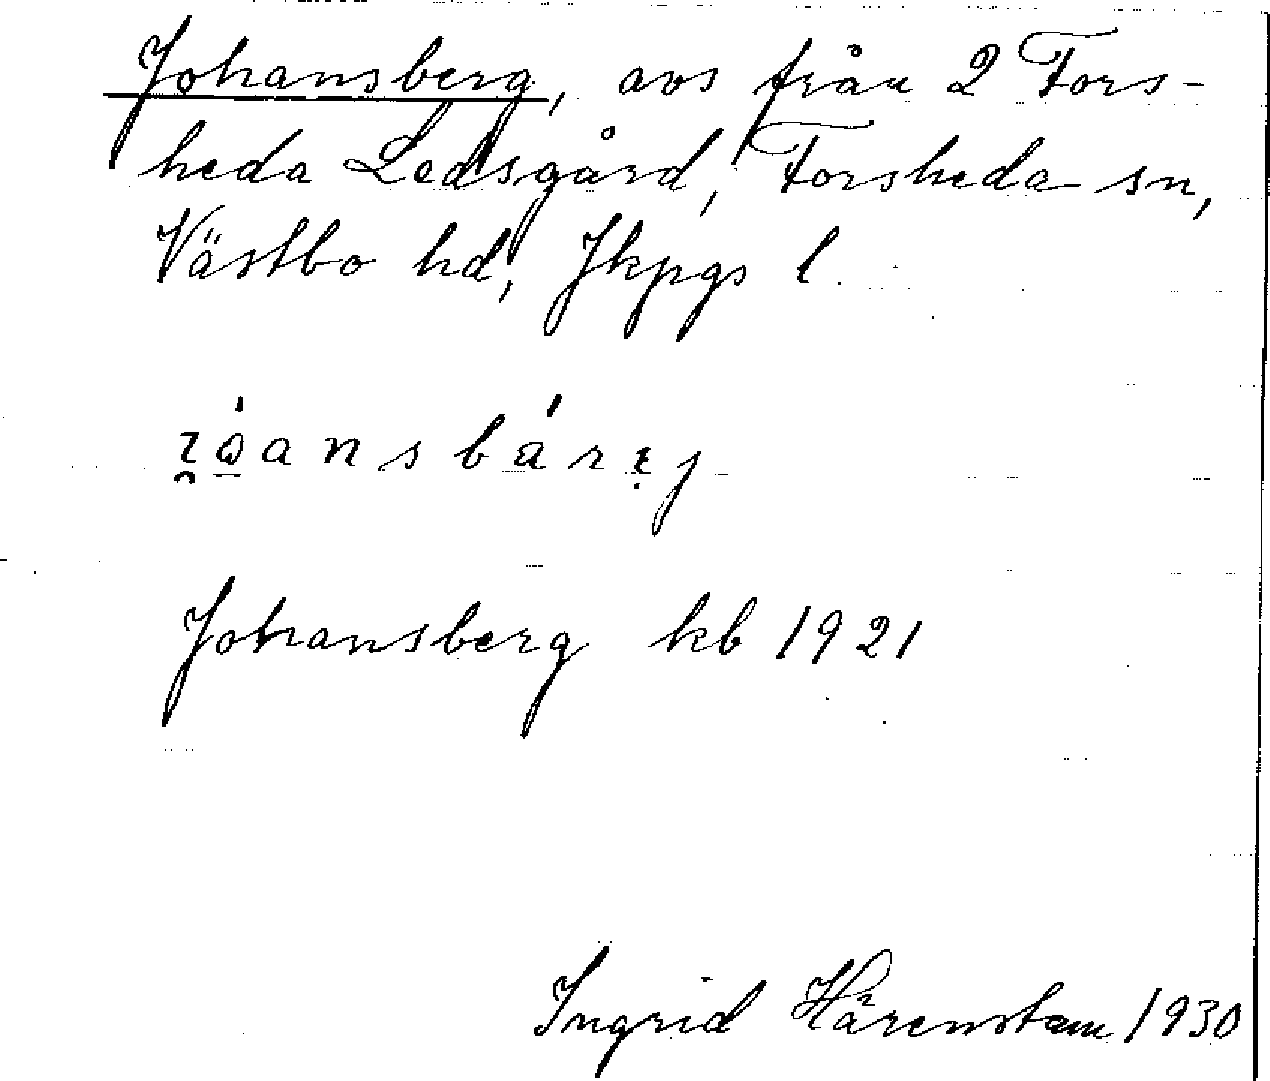 Johansberg, avs från 2 Fors-
heda Ledsgård, Forsheda sn,
Västbo hd, Jkpgs l
Johansberg kb 1921
Ingrid Härenstam 1930